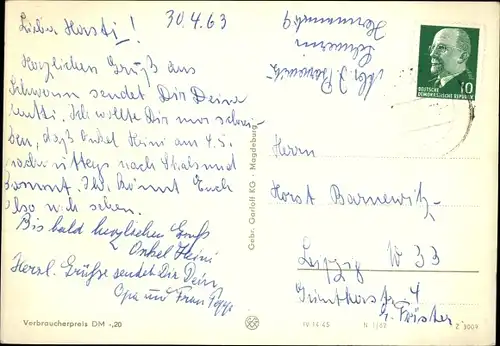 30.4.63
Lieber Horsti!
Herzlichen Gruß aus
Schwerin sendet Dir Deine
Mutti. Ich wollte Dir nur schrei-
ben, daß Onkel Heini am 4.5.
nachmittags nach Stralsund
kommt. Ihr könnt Euch
also noch sehen.
Bis bald herzlichen Gruß
Onkel Heini
Herzl. Grüße sendet Dir Dein
Opa und Frau
Verbraucherpreis DM -,20
Gebr. Garloff KG · Magdeburg
Abs.
Schwerin
DEUTSCHE
DEMOKRATISCHE REPUBLIK
10
Herrn
Horst Barnewitz
Leipzig W 33
4
IV-14-45
Z 3009